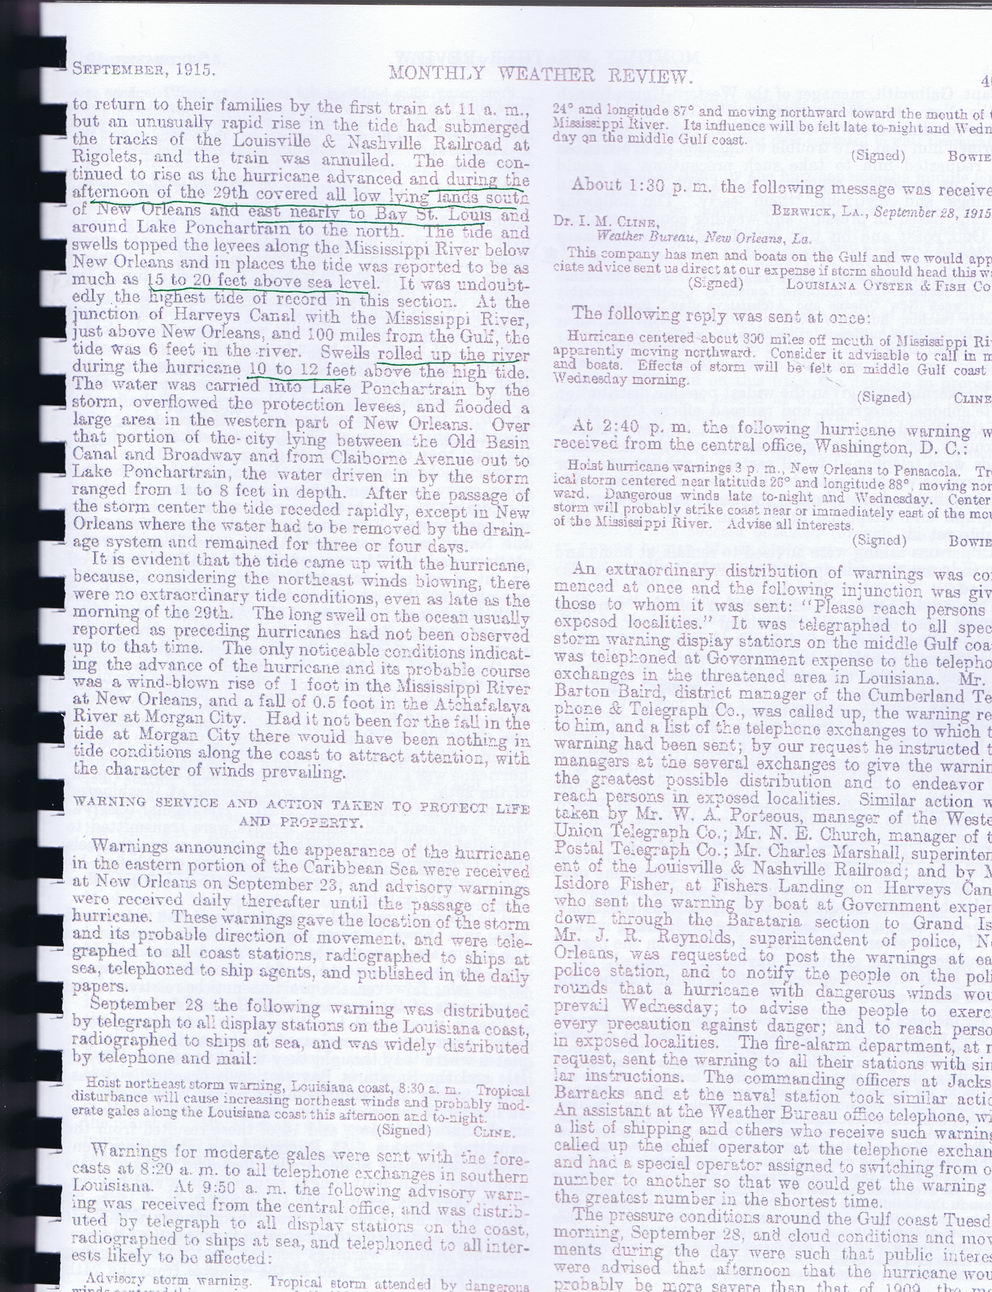 SEPTEMBER, 1915.
MONTHLY WEATHER REVIEW.
to return to their families by the first train at 11 a. m.,
but an unusually rapid rise in the tide had submerged
the tracks of the Louisville & Nashville Railroad at
Rigolets, and the train was annulled. The tide con-
tinued to rise as the hurricane advanced and during the
afternoon of the 29th covered all low lying lands south
of New Orleans and east nearly to Bay St. Louis and
around Lake Ponchartrain to the north. The tide and
swells topped the levees along the Mississippi River below
New Orleans and in places the tide was reported to be as
much as 15 to 20 feet above sea level. It was undoubt-
edly the highest tide of record in this section. At the
junction of Harveys Canal with the Mississippi River,
just above New Orleans, and 100 miles from the Gulf, the
tide was 6 feet in the river. Swells rolled up the river
during the hurricane 10 to 12 feet above the high tide.
The water was carried into Lake Ponchartrain by the
storm, overflowed the protection levees, and flooded a
large area in the western part of New Orleans. Over
that portion of the city lying between the Old Basin
Canal and Broadway and from Claiborne Avenue out to
Lake Ponchartrain, the water driven in by the storm
ranged from 1 to 8 feet in depth. After the passage of
the storm center the tide receded rapidly, except in New
Orleans where the water had to be removed by the drain-
age system and remained for three or four days.
It is evident that the tide came up with the hurricane,
because, considering the northeast winds blowing, there
were no extraordinary tide conditions, even as late as the
morning of the 29th. The long swell on the ocean usually
reported as preceding hurricanes had not been observed
up to that time. The only noticeable conditions indicat-
ing the advance of the hurricane and its probable course
was a wind-blown rise of 1 foot in the Mississippi River
at New Orleans, and a fall of 0.5 foot in the Atchafalaya
River at Morgan City. Had it not been for the fall in the
tide at Morgan City there would have been nothing in
tide conditions along the coast to attract attention, with
the character of winds prevailing.
WARNING SERVICE AND ACTION TAKEN TO PROTECT LIFE
AND PROPERTY.
Warnings announcing the appearance of the hurricane
in the eastern portion of the Caribbean Sea were received
at New Orleans on September 23, and advisory warnings
were received daily thereafter until the passage of the
hurricane. These warnings gave the location of the storm
and its probable direction of movement, and were tele-
graphed to all coast stations, radiographed to ships at
sea, telephoned to ship agents, and published in the daily
papers.
September 28 the following warning was distributed
by telegraph to all display stations on the Louisiana coast,
radiographed to ships at sea, and was widely distributed
by telephone and mail:
Hoist northeast storm warning, Louisiana coast, 8:30 a. m. Tropical
disturbance will cause increasing northeast winds and probably mod-
erate gales along the Louisiana coast this afternoon and to-night.
(Signed) CLINE.
Warnings for moderate gales were sent with the fore-
casts at 8:20 a. m. to all telephone exchanges in southern
Louisiana. At 9:50 a. m. the following advisory warn-
ing was received from the central office, and was distrib-
uted by telegraph to all display stations on the coast,
radiographed to ships at sea, and telephoned to all inter-
ests likely to be affected:
Advisory storm warning. Tropical storm attended by dangerous
24° and longitude 87° and moving northward toward the mouth of t
Mississippi River. Its influence will be felt late to-night and Wedn
day on the middle Gulf coast.
(Signed) BOWIE
About 1:30 p. m. the following message was receive
BERWICK, LA., September 28, 1915
Dr. I. M. CLINE,
Weather Bureau, New Orleans, La.
This company has men and boats on the Gulf and we would app
ciate advice sent us direct at our expense if storm should head this w
(Signed) LOUISIANA OYSTER & FISH Co
The following reply was sent at once:
Hurricane centered about 300 miles off mouth of Mississippi Ri
apparently moving northward. Consider it advisable to call in m
and boats. Effects of storm will be felt on middle Gulf coast
Wednesday morning.
(Signed) CLINE
At 2:40 p. m. the following hurricane warning w
received from the central office, Washington, D. C.:
Hoist hurricane warnings 3 p. m., New Orleans to Pensacola. Tr
ical storm centered near latitude 26° and longitude 88°, moving nor
ward. Dangerous winds late to-night and Wednesday. Center
storm will probably strike coast near or immediately east of the mou
of the Mississippi River. Advise all interests.
(Signed) BOWIE
An extraordinary distribution of warnings was co
menced at once and the following injunction was giv
those to whom it was sent: "Please reach persons
exposed localities." It was telegraphed to all spec
storm warning display stations on the middle Gulf coa
was telephoned at Government expense to the telepho
exchanges in the threatened area in Louisiana. Mr.
Barton Baird, district manager of the Cumberland Te
phone & Telegraph Co., was called up, the warning re
to him, and a list of the telephone exchanges to which t
warning had been sent; by our request he instructed t
managers at the several exchanges to give the warnin
the greatest possible distribution and to endeavor
reach persons in exposed localities. Similar action w
taken by Mr. W. A. Porteous, manager of the Weste
Union Telegraph Co.; Mr. N. E. Church, manager of t
Postal Telegraph Co.; Mr. Charles Marshall, superinten
ent of the Louisville & Nashville Railroad; and by M
Isidore Fisher, at Fishers Landing on Harveys Can
who sent the warning by boat at Government exper
down through the Barataria section to Grand Is
Mr. J. R. Reynolds, superintendent of police, N
Orleans, was requested to post the warnings at ea
police station, and to notify the people on the poli
rounds that a hurricane with dangerous winds wou
prevail Wednesday; to advise the people to exerc
every precaution against danger; and to reach perso
in exposed localities. The fire-alarm department, at m
request, sent the warning to all their stations with sim
lar instructions. The commanding officers at Jacks
Barracks and at the naval station took similar actio
An assistant at the Weather Bureau office telephone, wi
a list of shipping and others who receive such warning
called up the chief operator at the telephone exchan
and had a special operator assigned to switching from o
number to another so that we could get the warning
the greatest number in the shortest time.
The pressure conditions around the Gulf coast Tuesd
morning, September 28, and cloud conditions and mov
ments during the day were such that public interes
were advised that afternoon that the hurricane wou
probably be more severe than that of 1909, the m